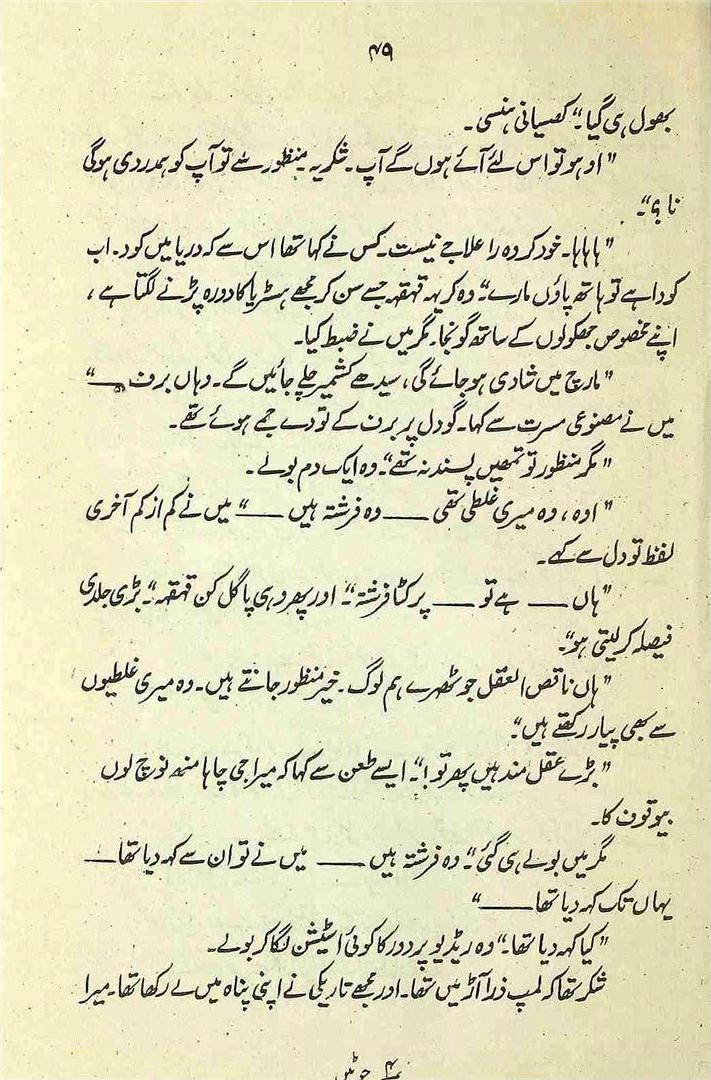 ۴۹
بھول ہی گیا۔“ کھسیانی ہنسی۔
”اوہو تو اس لئے آئے ہوں گے آپ۔ شکریہ۔ منظور سے تو آپ کو ہمدردی ہوگی
نا؟“۔
”ہاہاہا۔ خود کردہ را علاجے نیست۔ کس نے کہا تھا اس سے کہ دریا میں کود۔ اب
کودا ہے تو ہاتھ پاؤں مارے“۔ وہ کریہہ قہقہہ جسے سن کر مجھے ہسٹریا کا دورہ پڑنے لگتا ہے،
اپنے مخصوص جھکولوں کے ساتھ گونجا۔ مگر میں نے ضبط کیا۔
”مارچ میں شادی ہو جائے گی، سیدھے کشمیر چلے جائیں گے۔ وہاں برف ——“
میں نے مصنوعی مسرت سے کہا۔ گو دل پر برف کے تودے جمے ہوئے تھے۔
”مگر منظور تو تمھیں پسند نہ تھے“۔ وہ ایک دم بولے۔
”اوہ، وہ میری غلطی تھی —— وہ فرشتہ ہیں ——“ میں نے کم از کم آخری
لفظ تو دل سے کہے۔
”ہاں —— ہے تو —— پر کٹا فرشتہ“۔ اور پھر وہی پاگل کن قہقہہ“۔ بڑی جلدی
فیصلہ کر لیتی ہو“۔
”ہاں ناقص العقل جو ٹھہرے ہم لوگ۔ خیر منظور جانتے ہیں۔ وہ میری غلطیوں
سے بھی پیار رکھتے ہیں“۔
”بڑے عقل مند ہیں پھر تو!“۔ ایسے طعن سے کہا کہ میرا جی چاہا منھ نوچ لوں
بیوقوف کا۔
مگر میں بولے ہی گئی“۔ وہ فرشتہ ہیں —— میں نے تو ان سے کہہ دیا تھا ——
یہاں تک کہہ دیا تھا ——“
”کیا کہہ دیا تھا۔“ وہ ریڈیو پر دور کا کوئی اسٹیشن لگا کر بولے۔
شکر تھا کہ لمپ ذرا آڑ میں تھا۔ اور مجھے تاریکی نے اپنی پناہ میں لے رکھا تھا۔ میرا
چوٹیں